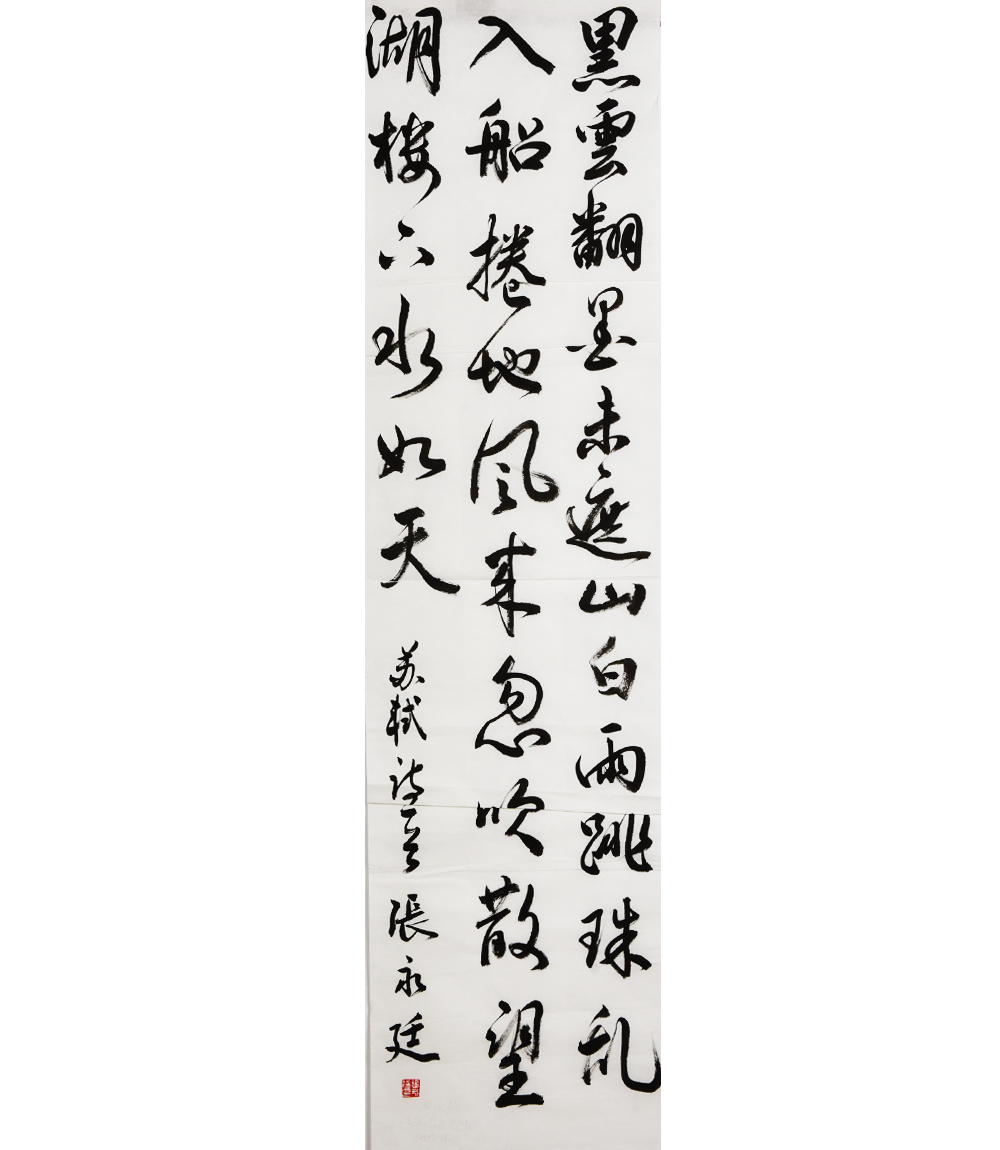 黑雲翻墨未遮山白雨跳珠乱
入船捲地風来忽吹散望
湖楼下水如天
苏軾詩一首 張永廷